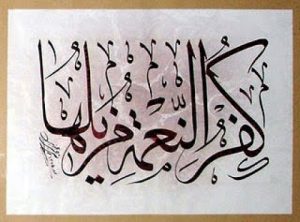 كُفْرُ النِّعْمَةِ مُزِيلُهَا